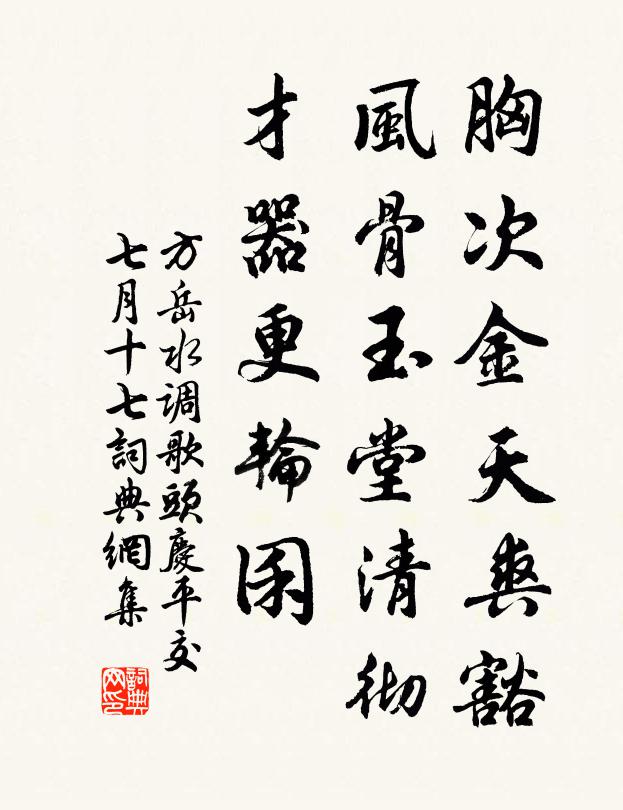 胸次金天爽豁
風骨玉堂清彻
才器更輪囷
方岳水调歌頭慶平交
七月十七詞典網集
詞典网印